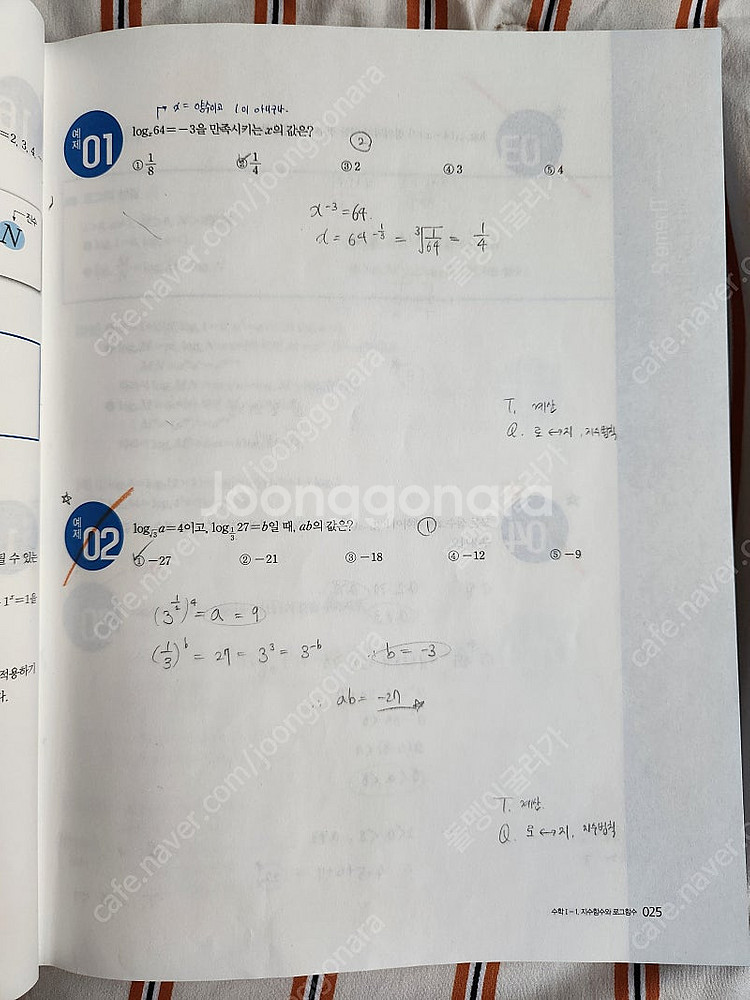 = 2, 3, 4,
진수
N
1ˣ=1을
적용하기
다.
예제 01
x = 양수이고 1이 아니구나.
logₓ64=−3을 만족시키는 x의 값은?
②
① 1/8 ② 1/4 ③ 2 ④ 3 ⑤ 4
x⁻³ = 64.
x = 64^(-1/3) = ³√(1/64) = 1/4
T. 계산
Q. 로↔지, 지수법칙
Joonggonara
☆
예제 02
log_√3 a=4이고, log_(1/3) 27=b일 때, ab의 값은?
①
① −27 ② −21 ③ −18 ④ −12 ⑤ −9
(3^(1/2))⁴ = a = 9
(1/3)^b = 27 = 3³ = 3^(-b) ∴ b = -3
∴ ab = -27
T. 계산.
Q. 로↔지, 지수법칙
수학 I - 1. 지수함수와 로그함수 025
cafe.naver.com/joonggonara
돌멩이굴러가